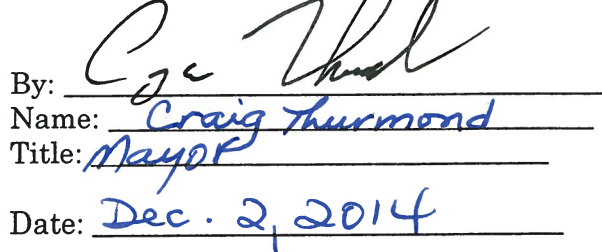 By:
Name: Craig Thurmond
Title: Mayor
Date: Dec. 2, 2014